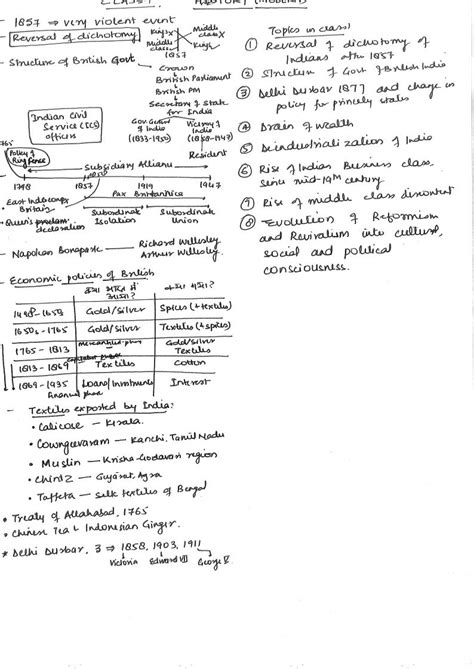 HISTORY (MODERN)
- 1857 ⇒ very violent event
- Reversal of dichotomy
Kings X Middle class X
Middle class Kings
1857
- Structure of British Govt
Crown
British Parliament
British PM
Secretary of State for India
Indian Civil Service (ICS) officers
Gov. General of India (1833-1950)
Viceroy of India (1858-1947)
Resident
1765
Policy of Ring Fence
Subsidiary Alliance
1798 1857 1858 1919 1947
East India Company
Britain
Pax Britannica
Subordinate Isolation
Subordinate Union
- Queen's declaration
- Napoleon Bonaparte — Richard Wellesley
Arthur Wellesley
- Economic policies of British
1498-1650s Gold/Silver Spices (+ textiles)
1650s-1765 Gold/Silver Textiles (+ spices)
1765-1813 mercantilist phase Gold/Silver Textiles
1813-1869 Textiles Cotton
1869-1935 Loans/Investments Interest
financial phase
- Textiles exported by India:
• Calicose — Kerala
• Cowngeevaram — Kanchi, Tamil Nadu
• Muslin — Krisha-Godavari region
• Chintz — Gujarat, Agra
• Taffeta — Silk textiles of Bengal
• Treaty of Allahabad, 1765
• Chinese Tea & Indonesian Ginger.
* Delhi Durbar, 3 ⇒ 1858, 1903, 1911
Victoria Edward VII George V
Topics in class 1
① Reversal of dichotomy of Indians after 1857
② Structure of Govt of British India
③ Delhi Durbar 1877 and change in policy for princely states
④ Drain of wealth
⑤ Deindustrialization of India
⑥ Rise of Indian Business class, since mid-19th century
⑦ Rise of middle class discontent
⑧ Evolution of Reformism and Revivalism into cultural, social and political consciousness.